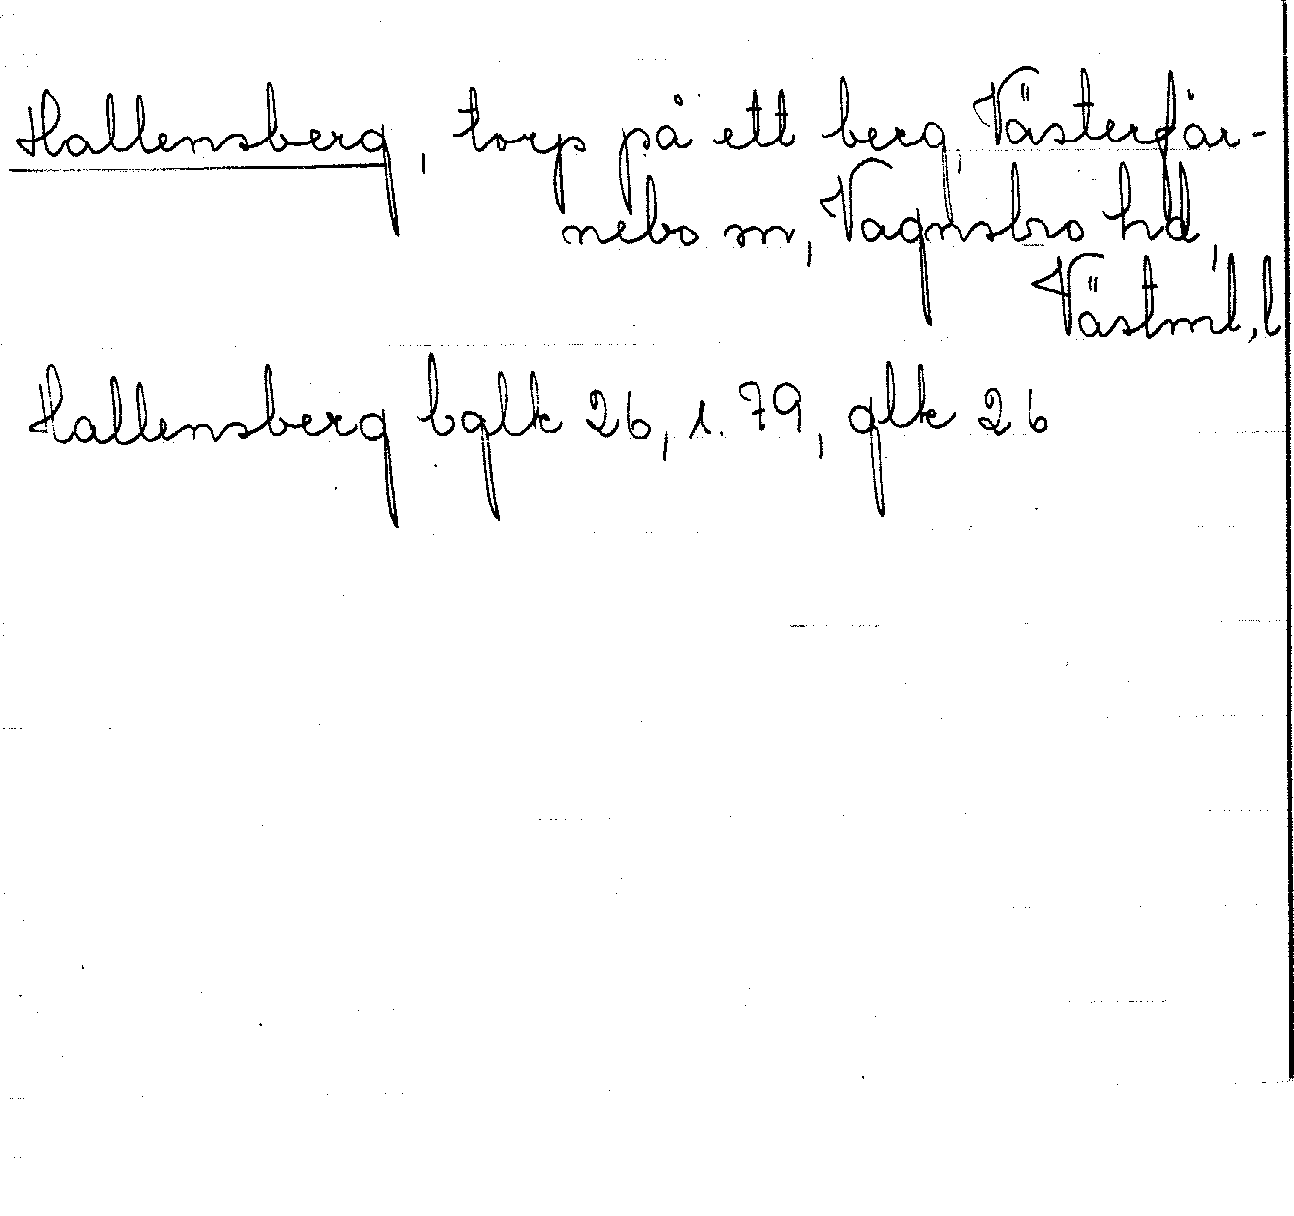 Hallensberg, torp på ett berg, Västerfär-
nebo sn, Vagnsbro hd,
Västml, l
Hallensberg bglk 26, s. 79, glk 26